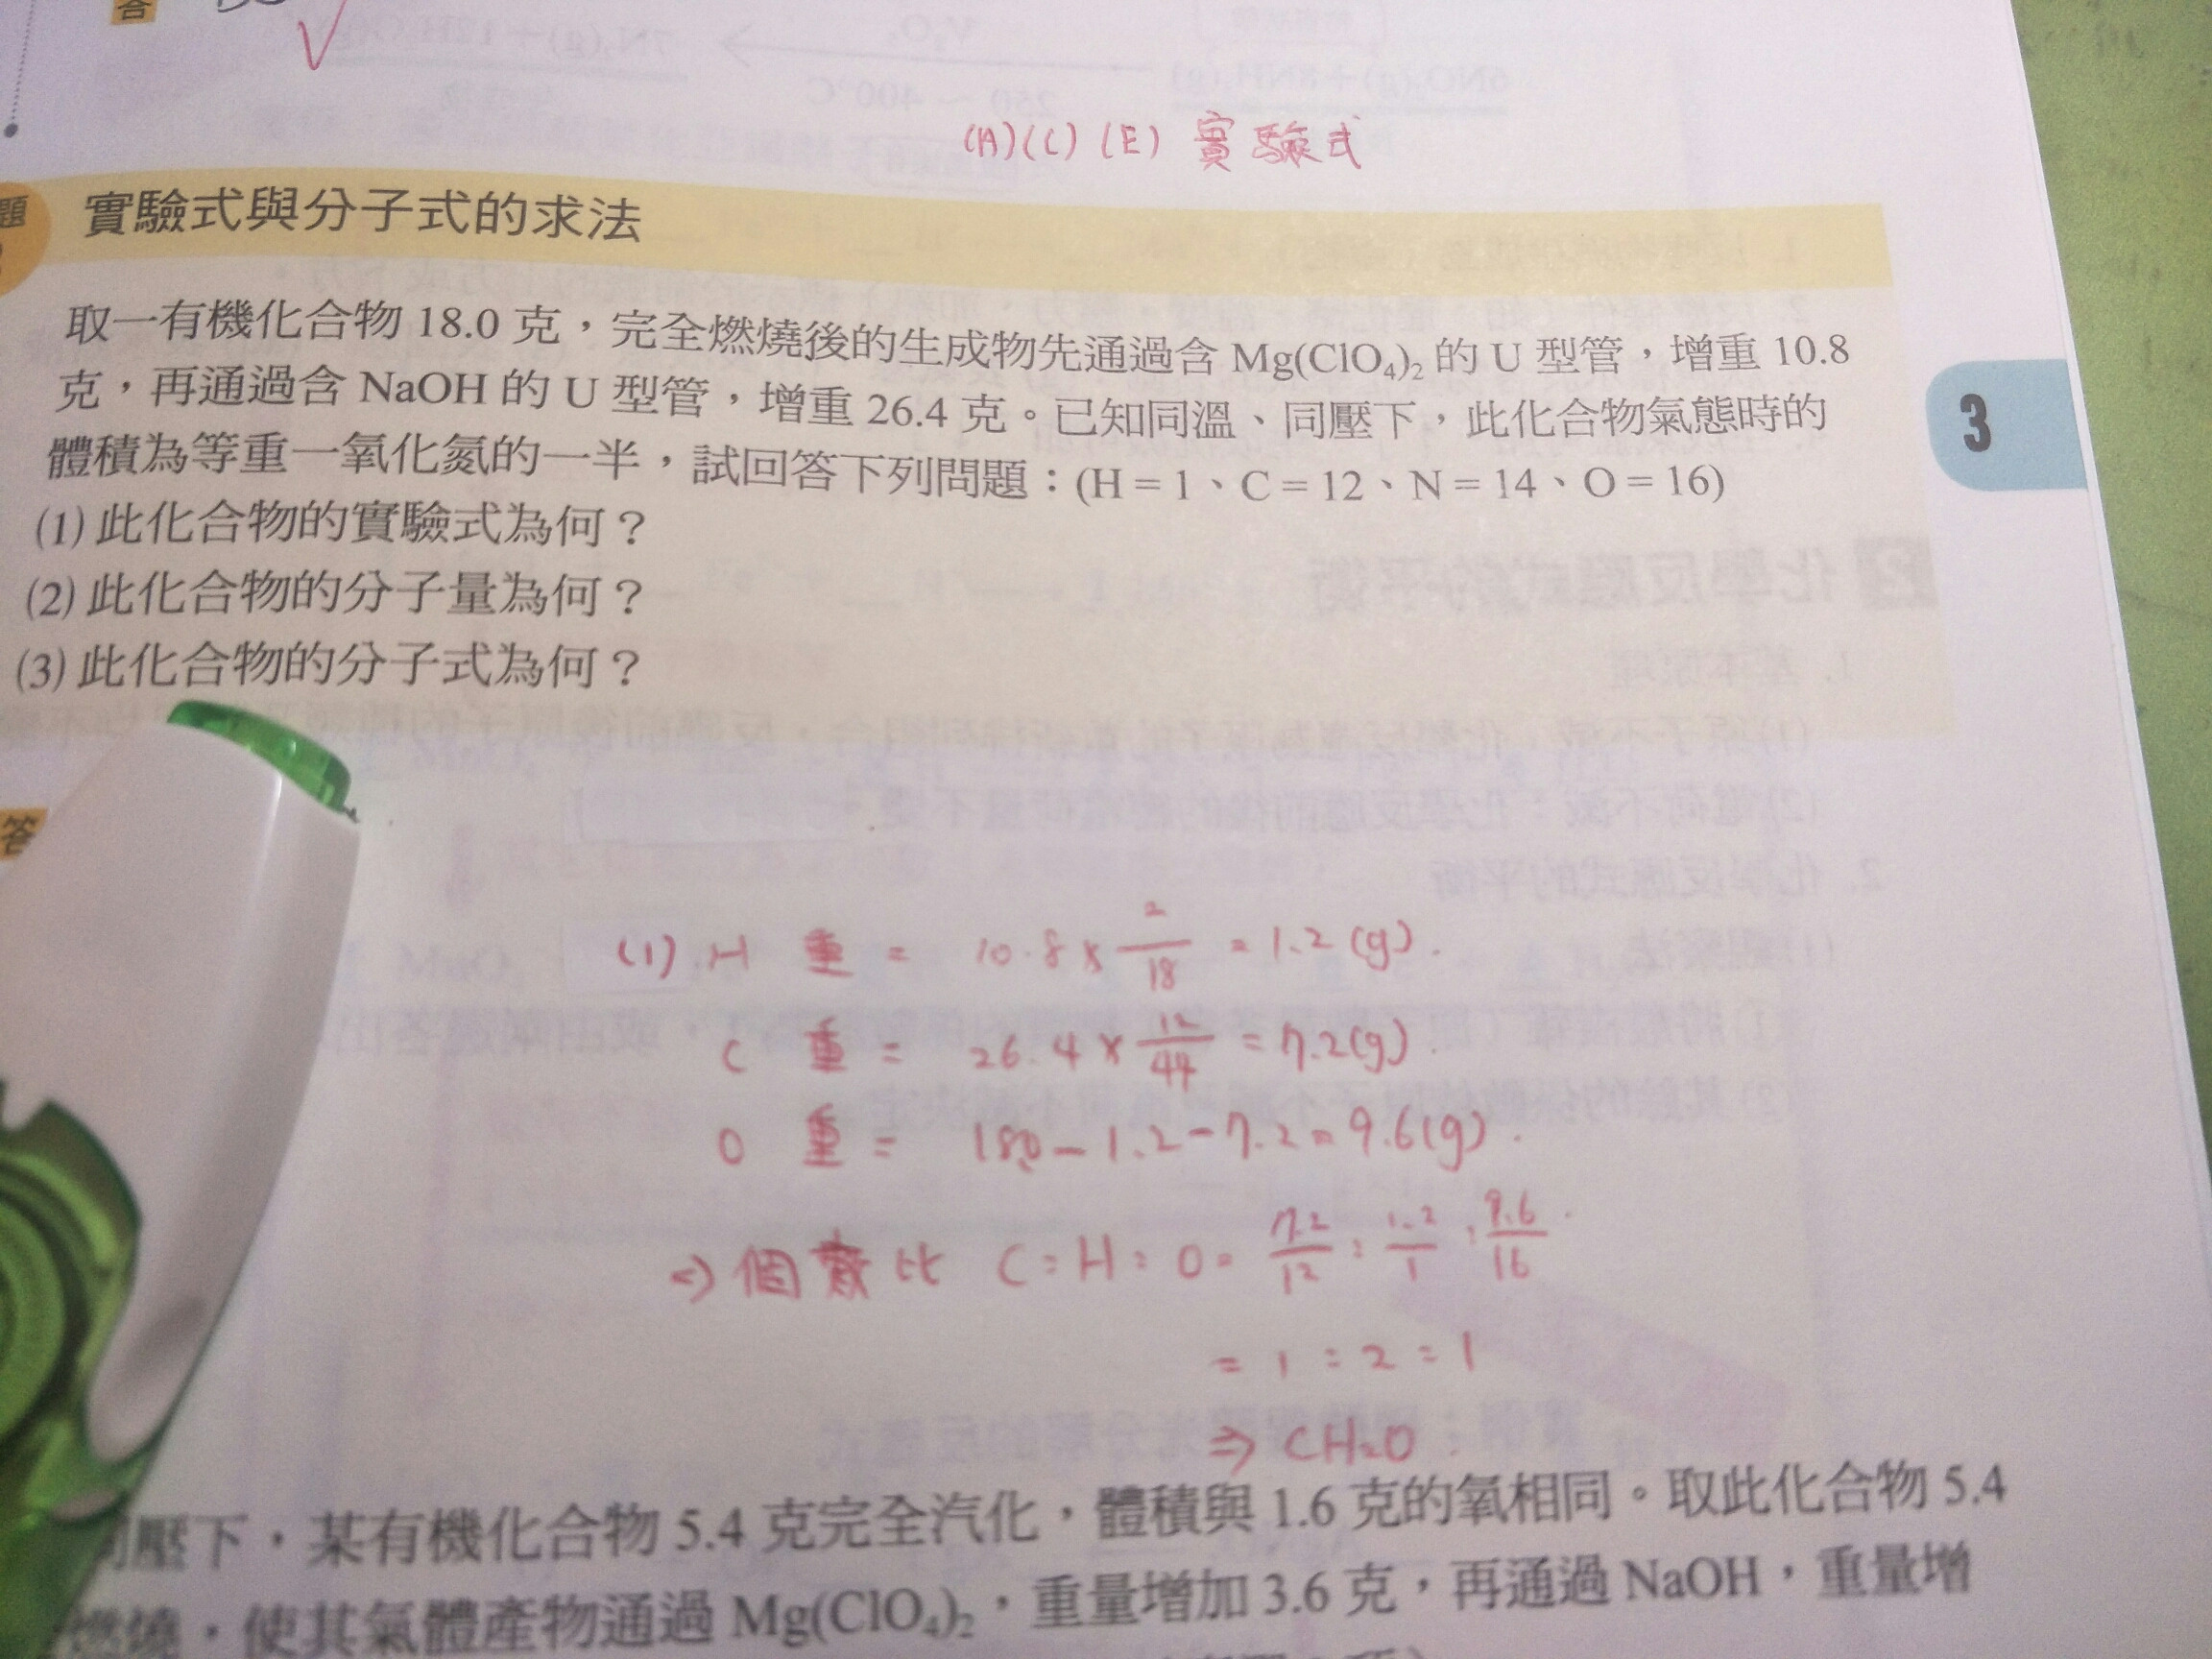 答
(A)(C)(E) 實驗式
題
實驗式與分子式的求法
取一有機化合物 18.0 克，完全燃燒後的生成物先通過含 Mg(ClO₄)₂ 的 U 型管，增重 10.8
克，再通過含 NaOH 的 U 型管，增重 26.4 克。已知同溫、同壓下，此化合物氣態時的
體積為等重一氧化氮的一半，試回答下列問題：(H = 1、C = 12、N = 14、O = 16)
3
(1) 此化合物的實驗式為何？
(2) 此化合物的分子量為何？
(3) 此化合物的分子式為何？
答
(1) H 重 = 10.8 × 2/18 = 1.2 (g).
C 重 = 26.4 × 12/44 = 7.2(g).
O 重 = 18.0 - 1.2 - 7.2 = 9.6(g).
⇒ 個數比 C : H : O = 7.2/12 : 1.2/1 : 9.6/16
= 1 : 2 : 1
⇒ CH₂O
壓下，某有機化合物 5.4 克完全汽化，體積與 1.6 克的氧相同。取此化合物 5.4
燃燒，使其氣體產物通過 Mg(ClO₄)₂，重量增加 3.6 克，再通過 NaOH，重量增